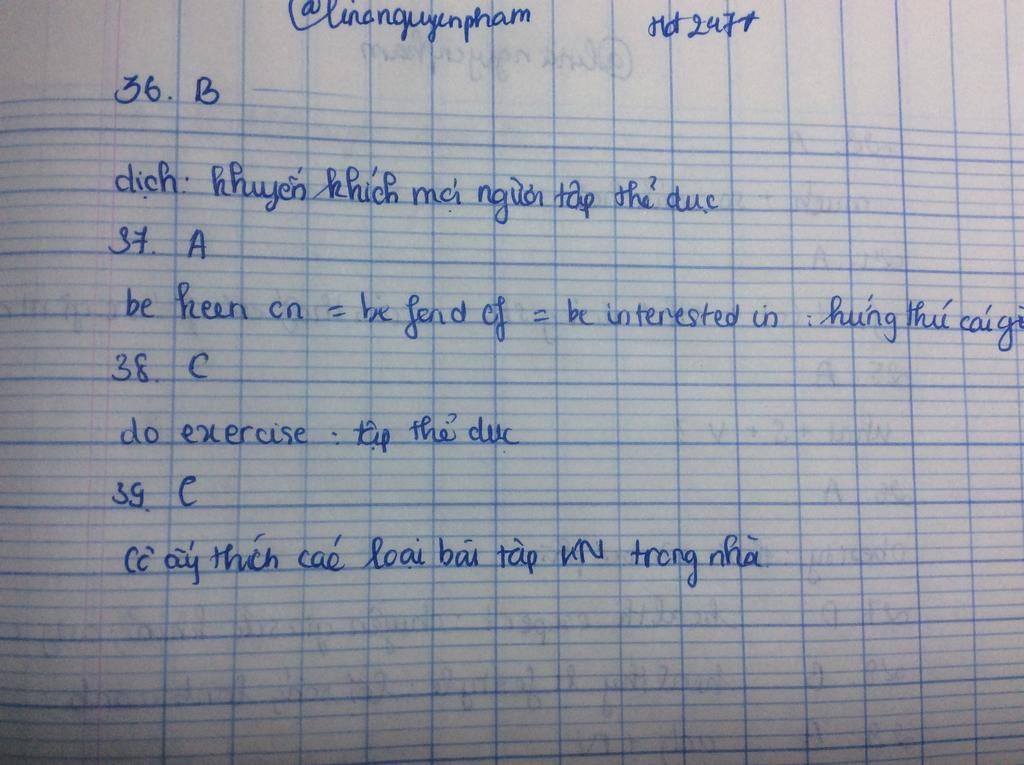 @linanguyenpham Hd 247+
36. B
dịch: khuyến khích mọi người tập thể dục
37. A
be keen on = be fond of = be interested in : hứng thú cái gì
38. C
do exercise : tập thể dục
39. C
Cô ấy thích các loại bài tập VN trong nhà